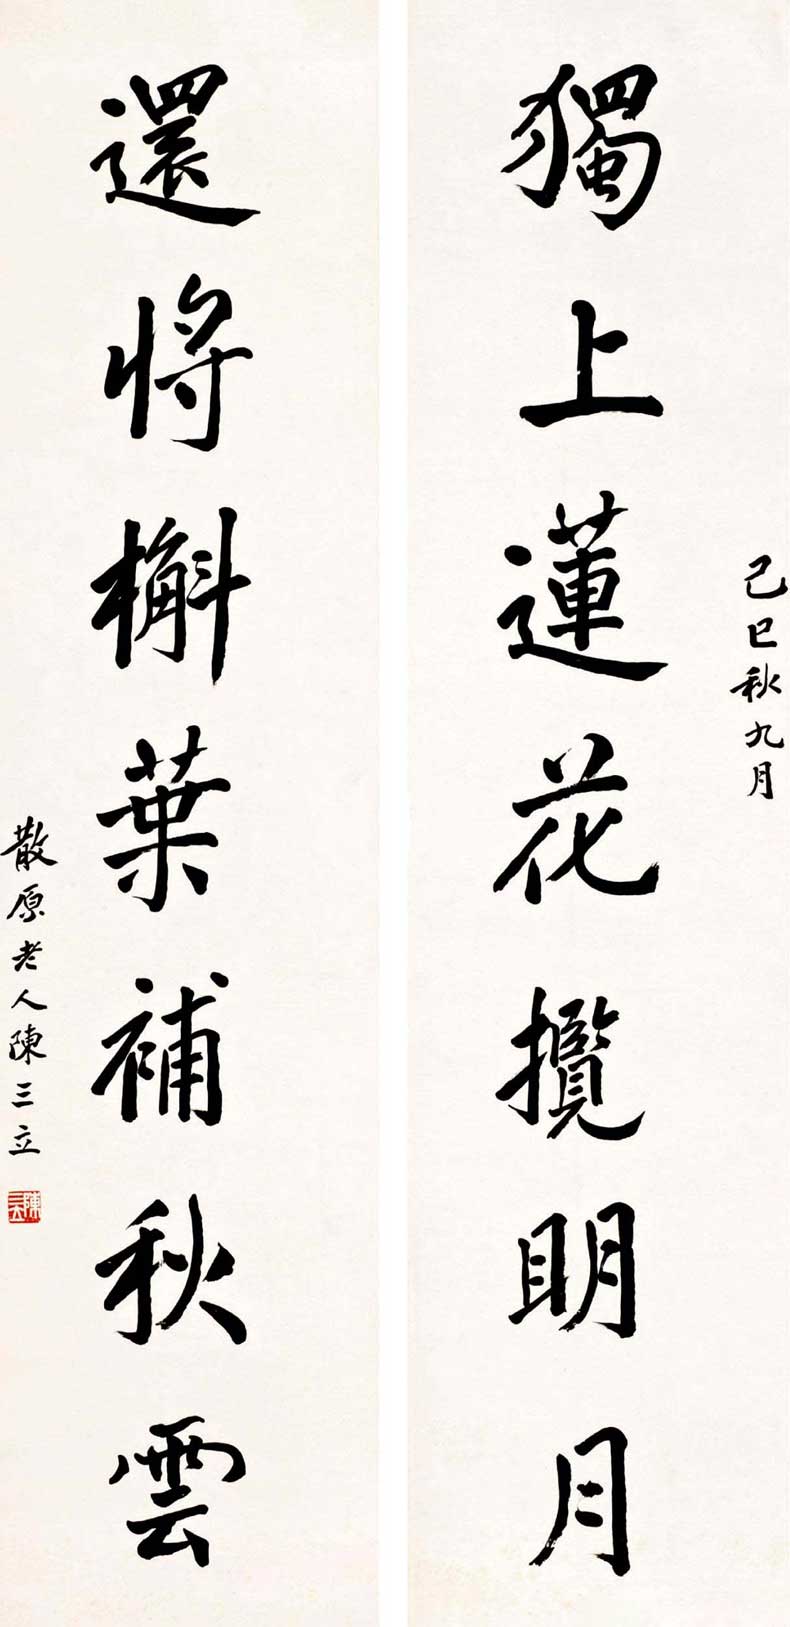 己巳秋九月
獨上蓮花攬明月
還將槲葉補秋雲
散原老人陳三立
陳三立